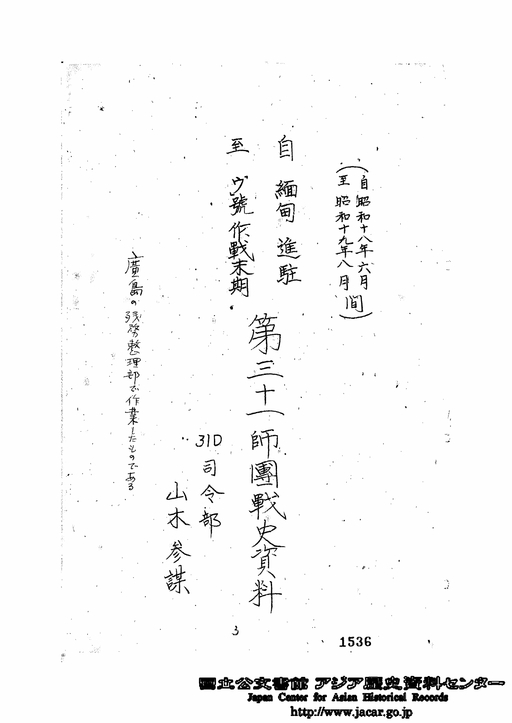 (自昭和十八年六月
至昭和十九年八月間)
自緬甸進駐
至ウ號作戰末期
第三十一師團戰史資料
31D司令部
山木参謀
廣島の残務整理部で作業したものである
3
1536
国立公文書館 アジア歴史資料センター
Japan Center for Asian Historical Records
http://www.jacar.go.jp